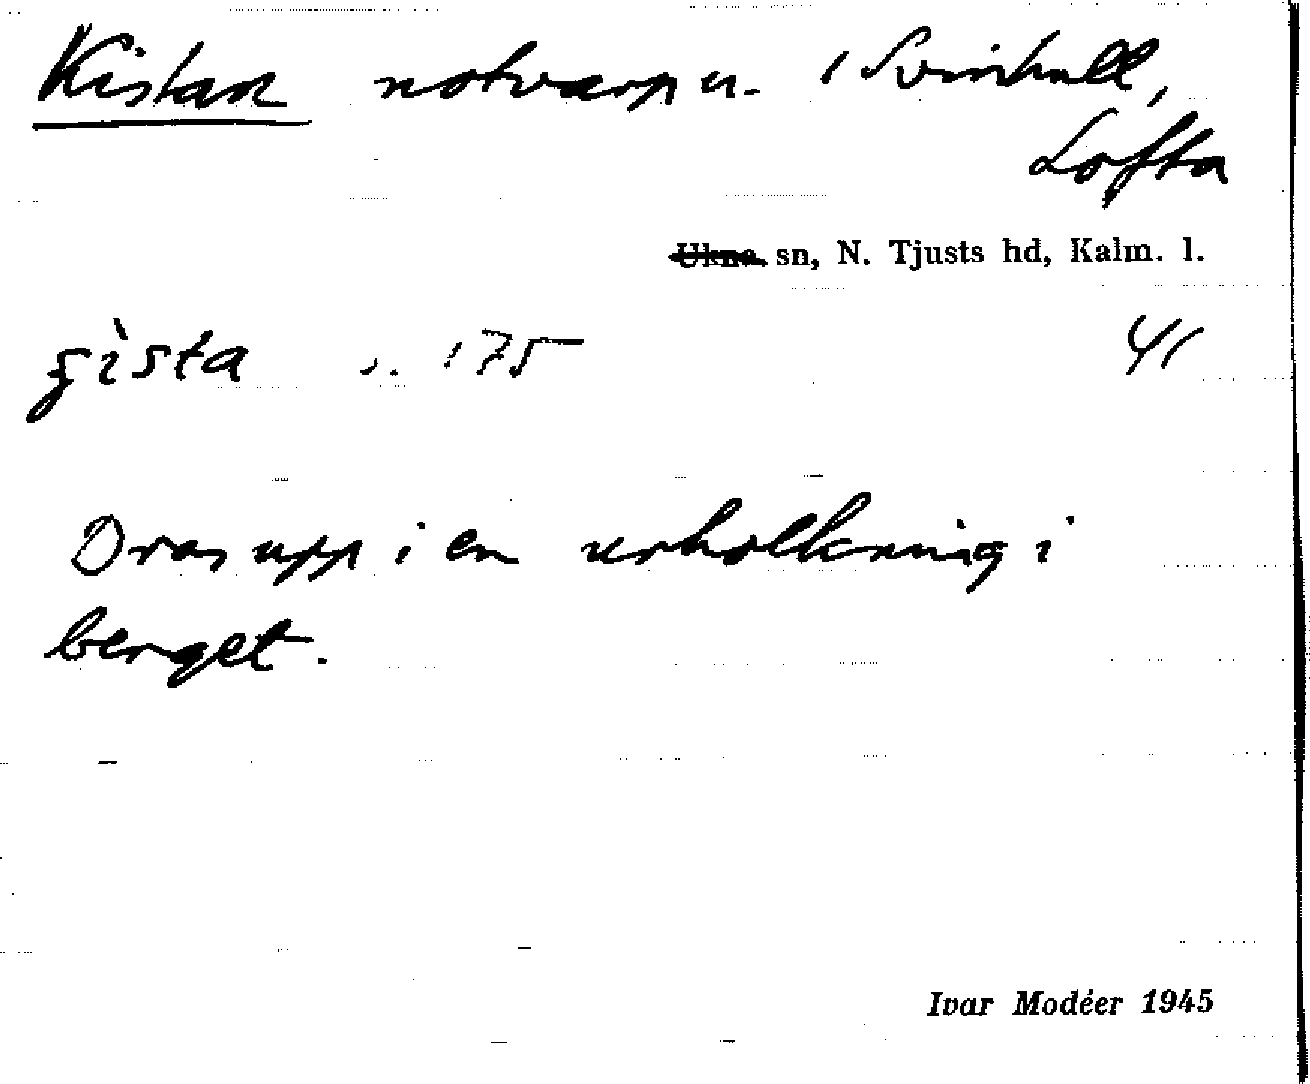 Kistan notvarp u. Svinhult,
Lofta
Ukna sn, N. Tjusts hd, Kalm. l.
s. 175 41
Dras upp i en urholkning i
berget.
Ivar Modéer 1945